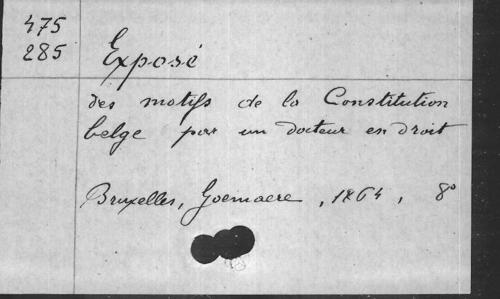 475
285
Exposé
des motifs de la Constitution
belge par un docteur en droit
Bruxelles, Goemaere, 1864, 8°